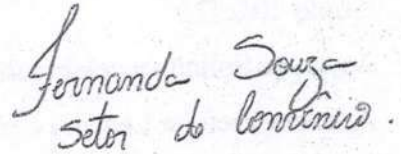 Fernanda Souza
Setor de Convênio.